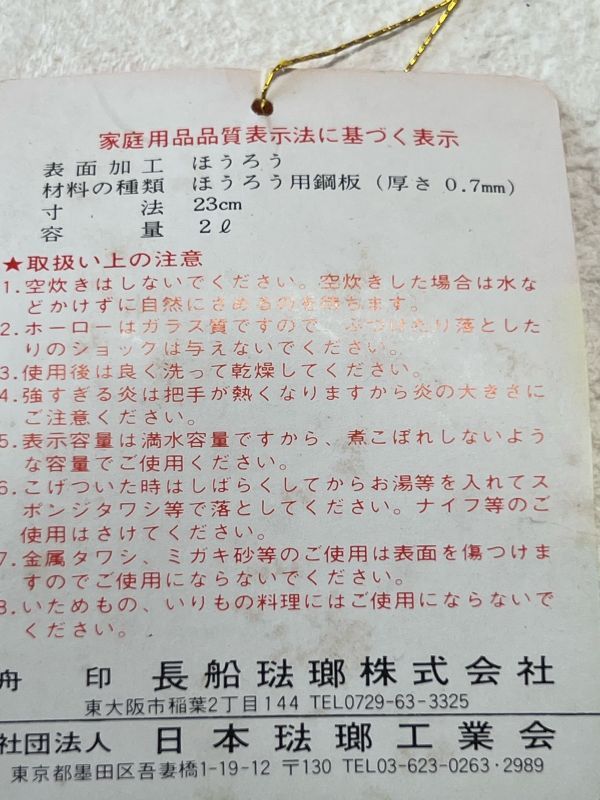 家庭用品品質表示法に基づく表示
表面加工 ほうろう
材料の種類 ほうろう用鋼板（厚さ 0.7mm）
寸法 23cm
容量 2ℓ
★取扱い上の注意
1.空炊きはしないでください。空炊きした場合は水な
どかけずに自然にさめるのを待ちます。
2.ホーローはガラス質ですので、ぶつけたり落とした
りのショックは与えないでください。
3.使用後は良く洗って乾燥してください。
4.強すぎる炎は把手が熱くなりますから炎の大きさに
ご注意ください。
5.表示容量は満水容量ですから、煮こぼれしないよう
な容量でご使用ください。
6.こげついた時はしばらくしてからお湯等を入れてス
ポンジタワシ等で落としてください。ナイフ等のご
使用はさけてください。
7.金属タワシ、ミガキ砂等のご使用は表面を傷つけま
すのでご使用にならないでください。
8.いためもの、いりもの料理にはご使用にならないで
ください。
舟印 長船琺瑯株式会社
東大阪市稲葉2丁目144 TEL0729-63-3325
社団法人 日本琺瑯工業会
東京都墨田区吾妻橋1-19-12 〒130 TEL03-623-0263・2989